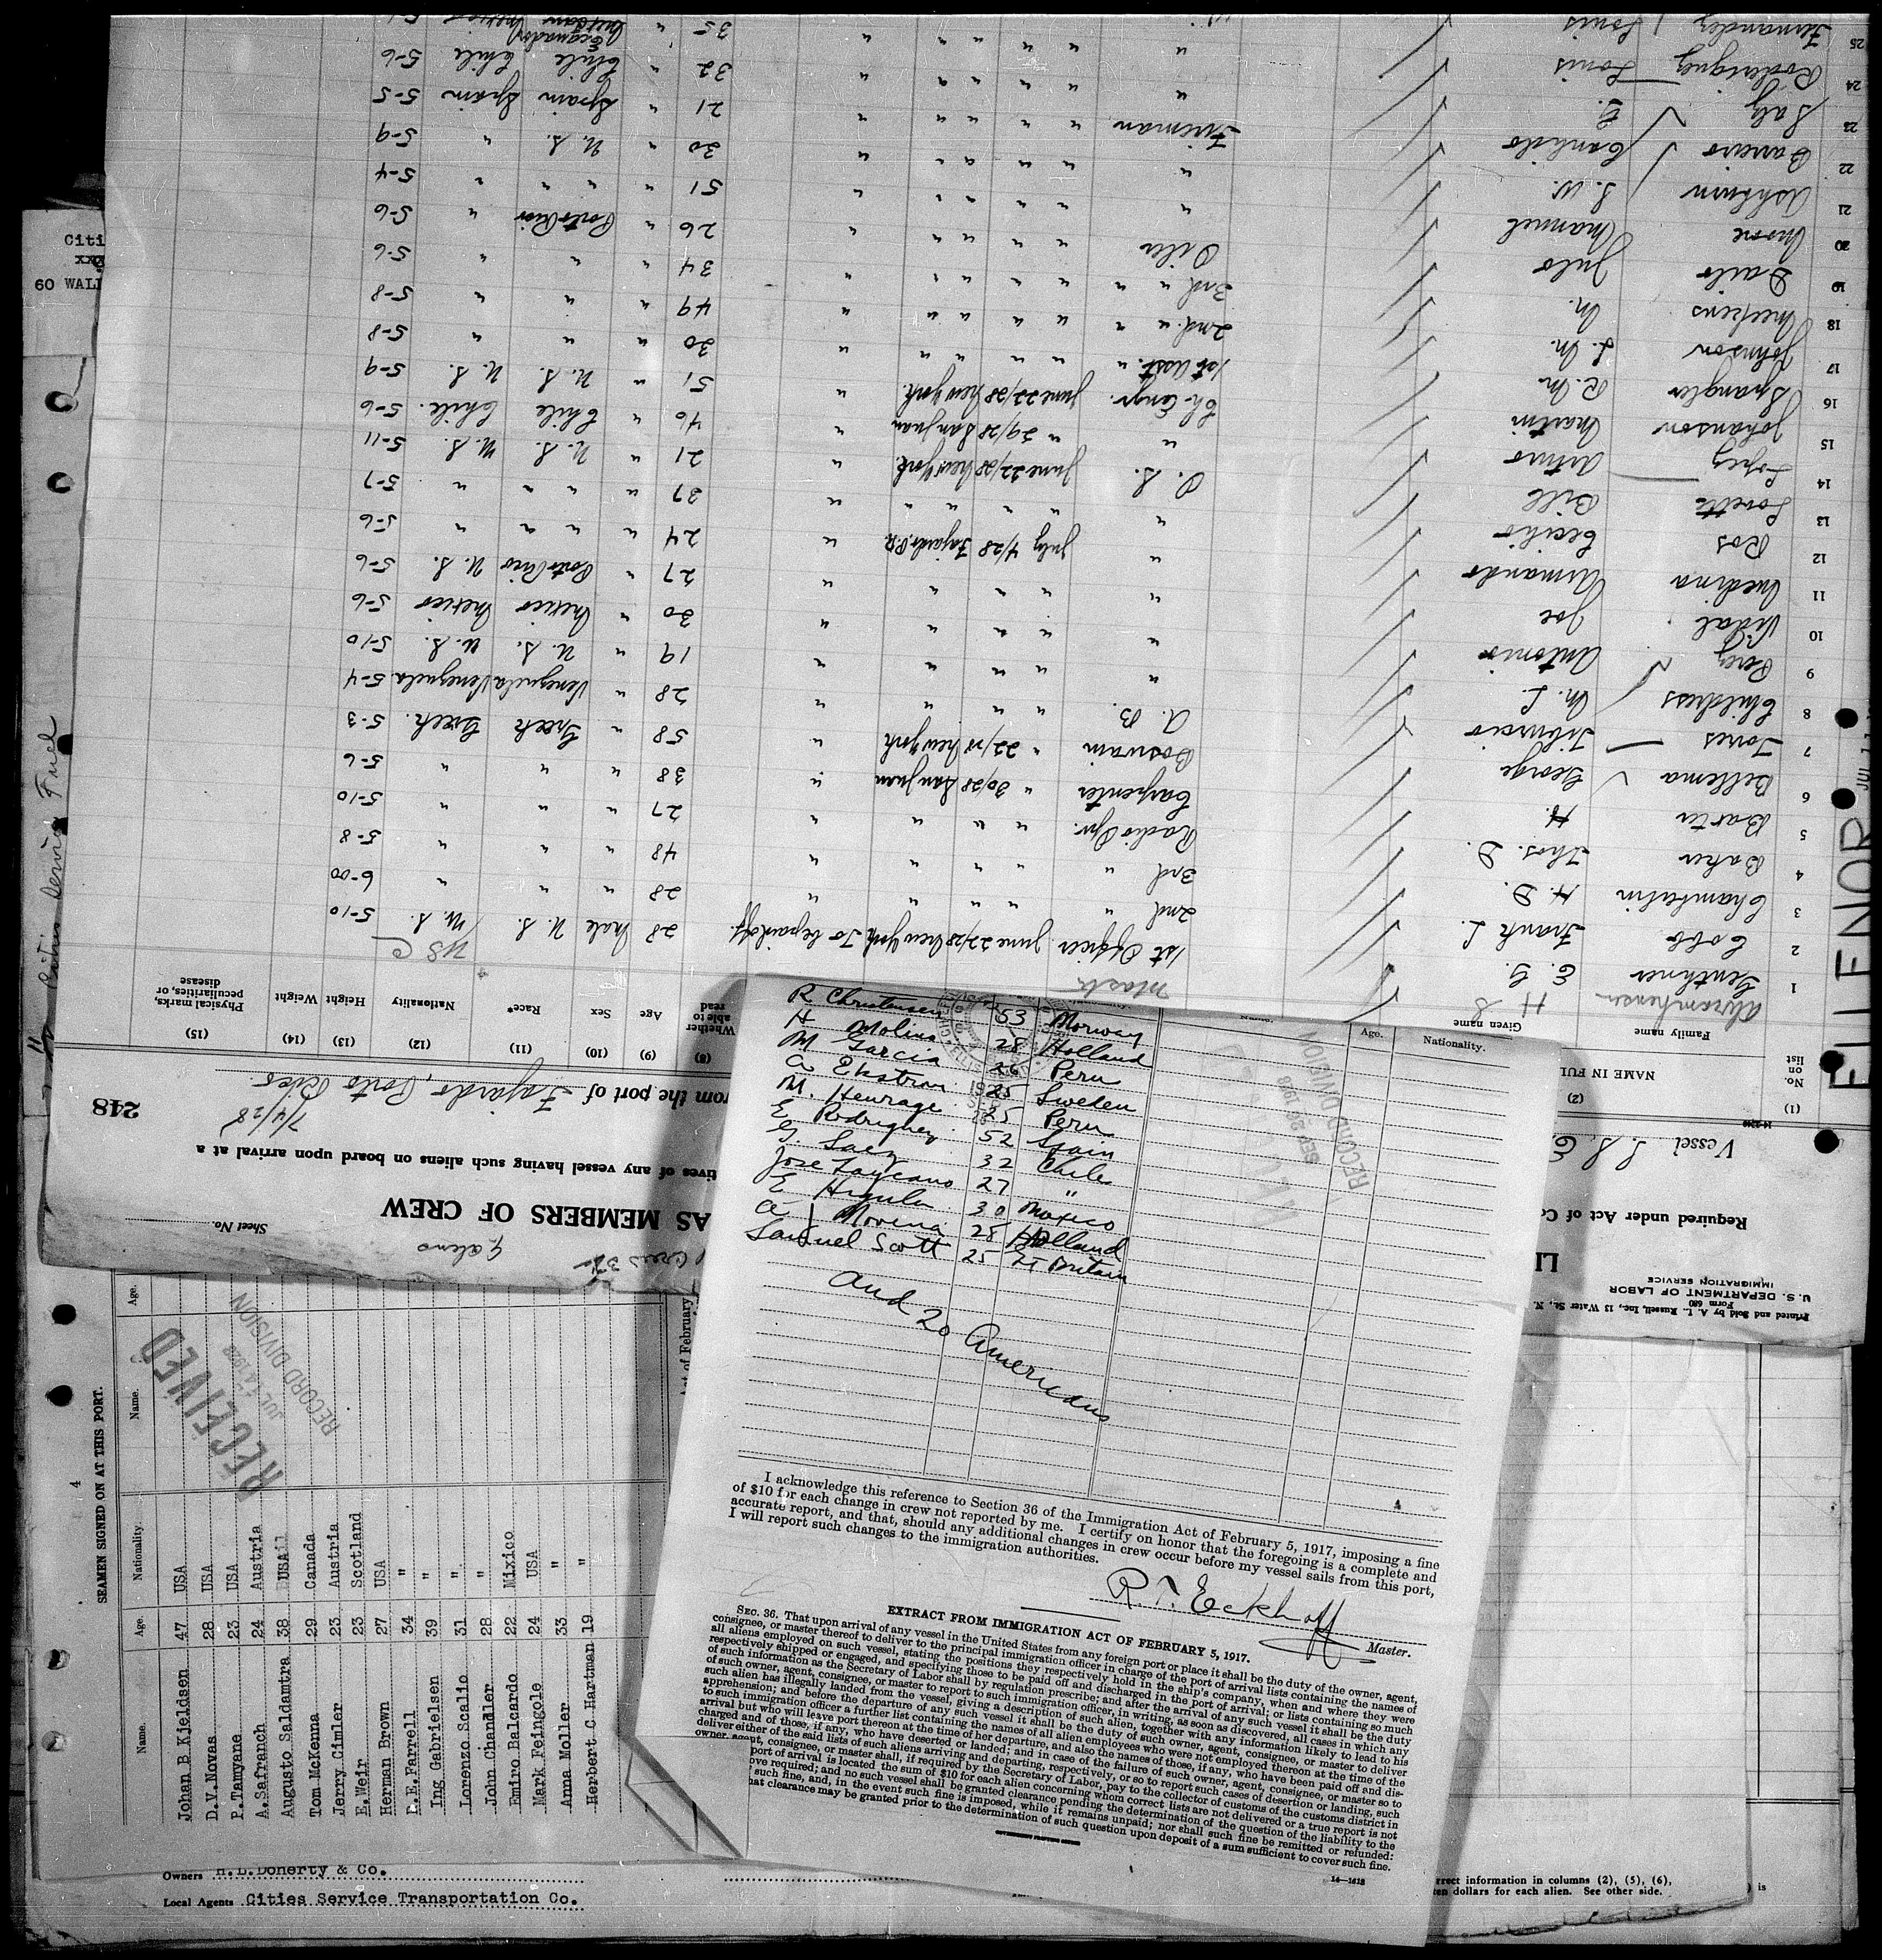 Citi
60 WALL
Printed and Sold by A. L. Russell, Inc., 13 Water St., N.
Form 680
U. S. DEPARTMENT OF LABOR
IMMIGRATION SERVICE
LI
Required under Act of Co
AS MEMBERS OF CREW
Sheet No.
Vessel S. S. E
tives of any vessel having such aliens on board upon arrival at a
rom the port of Fajardo, Porto Rico. 7/4/28
248
(1) (2) (8) (9) (10) (11) (12) (13) (14) (15)
No. on list NAME IN FUL Whether able to read Age Sex Race* Nationality Height Weight Physical marks, peculiarities, or disease
Family name Given name
Abramhensen H S Master USC
1 Genthner E. G. 1st Officer June 22/28 New York To be paid off. 28 Male U. S. U. S. 5-10
2 Cobb Frank L. 2nd " " " " " 28 " " " 6-00
3 Chamberlin H. D. 3rd " " " " " 48 " " " 5-8
4 Baker Thos. D. Radio Opr. " " " " 27 " " " 5-10
5 Barter H. Carpenter " 30/28 San Juan " 38 " " " 5-6
6 Bellema George Boswain " 22/28 New York " 58 " Greek Greek. 5-3
7 Torres Tiburcio A. B. " " " " 28 " Venezuela Venezuela 5-4
8 Childress M. L. " " " " " 19 " U. S. U. S. 5-10
9 Perez Antonio " " " " " 30 " Mexico Mexico 5-6
10 Vidal Joe " " " " " 27 " Porto Rico U. S. 5-6
11 Medina Armando " July 4/28 Fajardo P.R. " 24 " " " 5-6
12 Ros Cecilio " " " " " 37 " " " 5-7
13 Lorette Bill O. S. June 22/28 New York. " 21 " U. S. U. S. 5-11
14 Lopez Arturo " " 29/28 San Juan " 46 " Chile Chile. 5-6
15 Johanson Martin Ch. Engr. June 22/28 New York. " 51 " U. S. U. S. 5-9
16 Spangler R. M. 1st Asst. " " " " " 30 " " " 5-8
17 Johnson L. M. 2nd. " " " " " " 49 " " " 5-8
18 Meekins M. 3rd " " " " " " 34 " " " 5-6
19 Davis Julo Oiler " " " " 26 " Porto Rico " 5-6
20 Manuel " " " " " 51 " " " 5-4
21 Ashburn S. W. " " " " " 30 " U. S. " 5-9
22 Barreiro Candido Fireman " " " " 21 " Spain Spain 5-5
23 G. " " " " " 32 " Chile Chile 5-6
24 Rodriguez Louis " " " " " 35 "
25 Fernandez Louis
ELLENOR
Age. Nationality.
R Christensen 53 Norway
H Molina 28 Holland
M Garcia 26 Peru
A Ekstrom 25 Sweden
M. Henrage 25 Peru
E Rodriguez 52 Spain
G. Saez 32 Chile
Jose Laycano 27 "
E Higula 30 Mexico
A Morena 28 Holland
Samuel Scott 25 Gt Britain
And 20 Americans
RECORD DIVISION
I acknowledge this reference to Section 36 of the Immigration Act of February 5, 1917, imposing a fine
of $10 for each change in crew not reported by me. I certify on honor that the foregoing is a complete and
accurate report, and that, should any additional changes in crew occur before my vessel sails from this port,
I will report such changes to the immigration authorities.
R. T. Eckhoff
Master.
EXTRACT FROM IMMIGRATION ACT OF FEBRUARY 5, 1917.
SEC. 36. That upon arrival of any vessel in the United States from any foreign port or place it shall be the duty of the owner, agent,
consignee, or master thereof to deliver to the principal immigration officer in charge of the port of arrival lists containing the names of
all aliens employed on such vessel, stating the positions they respectively hold in the ship's company, when and where they were
respectively shipped or engaged, and specifying those to be paid off and discharged in the port of arrival; or lists containing so much
of such information as the Secretary of Labor shall by regulation prescribe; and after the arrival of any such vessel it shall be the duty
of such owner, agent, consignee, or master to report to such immigration officer, in writing, as soon as discovered, all cases in which any
such alien has illegally landed from the vessel, giving a description of such alien, together with any information likely to lead to his
apprehension; and before the departure of any such vessel it shall be the duty of such owner, agent, consignee, or master to deliver
to such immigration officer a further list containing the names of all alien employees who were not employed thereon at the time of the
arrival but who will leave port thereon at the time of her departure, and also the names of those, if any, who have been paid off and dis-
charged and of those, if any, who have deserted or landed; and in case of the failure of such owner, agent, consignee, or master so to
deliver either of the said lists of such aliens arriving and departing, respectively, or so to report such cases of desertion or landing, such
owner, agent, consignee, or master shall, if required by the Secretary of Labor, pay to the collector of customs of the customs district in
port of arrival is located the sum of $10 for each alien concerning whom correct lists are not delivered or a true report is not
ove required; and no such vessel shall be granted clearance pending the determination of the question of the liability to the
such fine, and, in the event such fine is imposed, while it remains unpaid; nor shall such fine be remitted or refunded:
hat clearance may be granted prior to the determination of such question upon deposit of a sum sufficient to cover such fine.
14—1618
4
SEAMEN SIGNED ON AT THIS PORT.
Name. Age. Nationality. Name. Age.
Johan B Kjeldsen 47 USA
D.V.Novas 28 USA
P.Tamyane 23 USA
A.Safranch 24 Austria
Augusto Saldamtra 38 USA
Tom McKenna 29 Canada
Jerry Cimler 23 Austria
E.Weir 23 Scotland
Herman Brown 27 USA
D.E.Farrell 34 "
Ing Gabrielsen 39 "
Lorenzo Scalio 31 "
John Chandler 28 "
Emiro Balcardo 22 Mixico
Mark Feingole 24 USA
Anna Moller 33 "
Herbert C.Hartman 19 "
RECEIVED
JUL 14 1928
RECORD DIVISION
Act of February
Owners H.L.Doherty & Co.
Local Agents Cities Service Transportation Co.
rrect information in columns (2), (5), (6),
ten dollars for each alien. See other side.
is